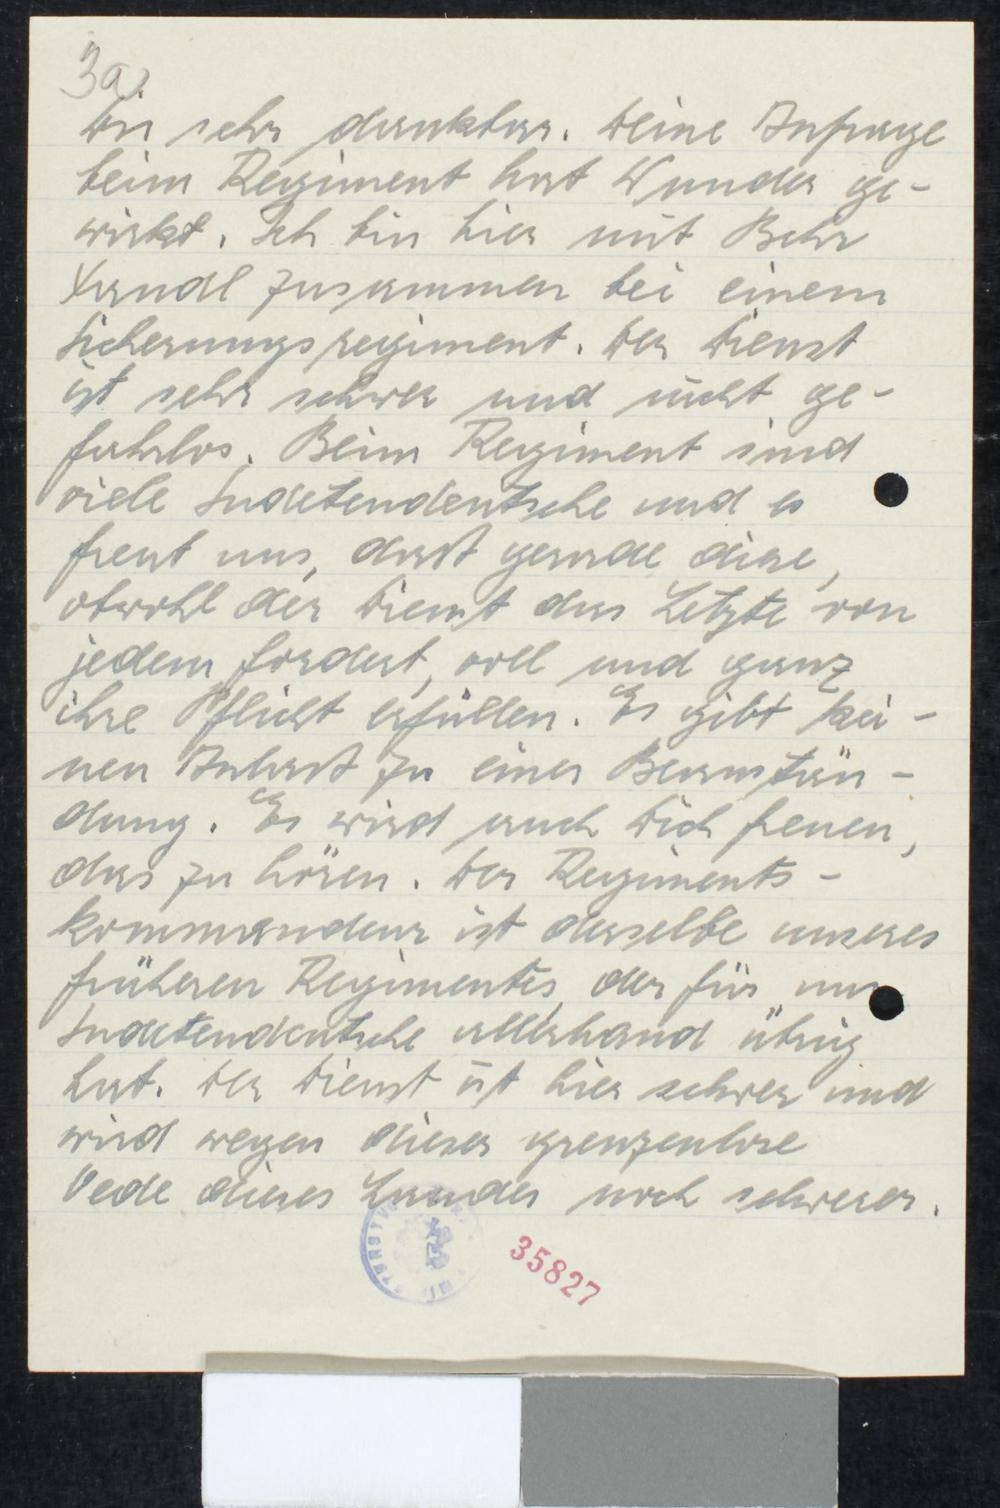 3a.
Dir sehr dankbar. Deine Anfrage
beim Regiment hat Wunder ge-
wirkt. Ich bin hier mit Behr
Xandl zusammen bei einem
Sicherungsregiment. Der Dienst
ist sehr schwer und nicht ge-
fahrlos. Beim Regiment sind
viele Sudetendeutsche und es
freut uns, dast gerade diese,
obwohl der Dienst das Letzte von
jedem fordert, voll und ganz
ihre Pflicht erfüllen. Es gibt kei-
nen Anlast zu einer Beanstän-
dung. Es wird auch Dich freuen,
das zu hören. Der Regiments-
kommandeur ist derselbe unseres
früheren Regimentes, der für uns
Sudetendeutsche allerhand übrig
hat. Der Dienst ist hier schwer und
wird wegen dieser grenzenlose
Oede dieses Landes noch schwerer.
35827